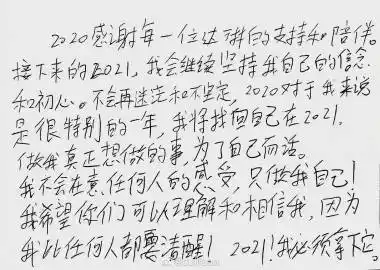 2020感谢每一位达琳的支持和陪伴。
接下来的2021，我会继续坚持我自己的信念
和初心。不会再迷茫和不坚定，2020对于我来说
是很特别的一年，我将找回自己在2021。
做我真正想做的事，为了自己而活。
我不会在意任何人的感受，只做我自己！
我希望你们可以理解和相信我，因为
我比任何人都要清醒！2021！我必须拿下它。